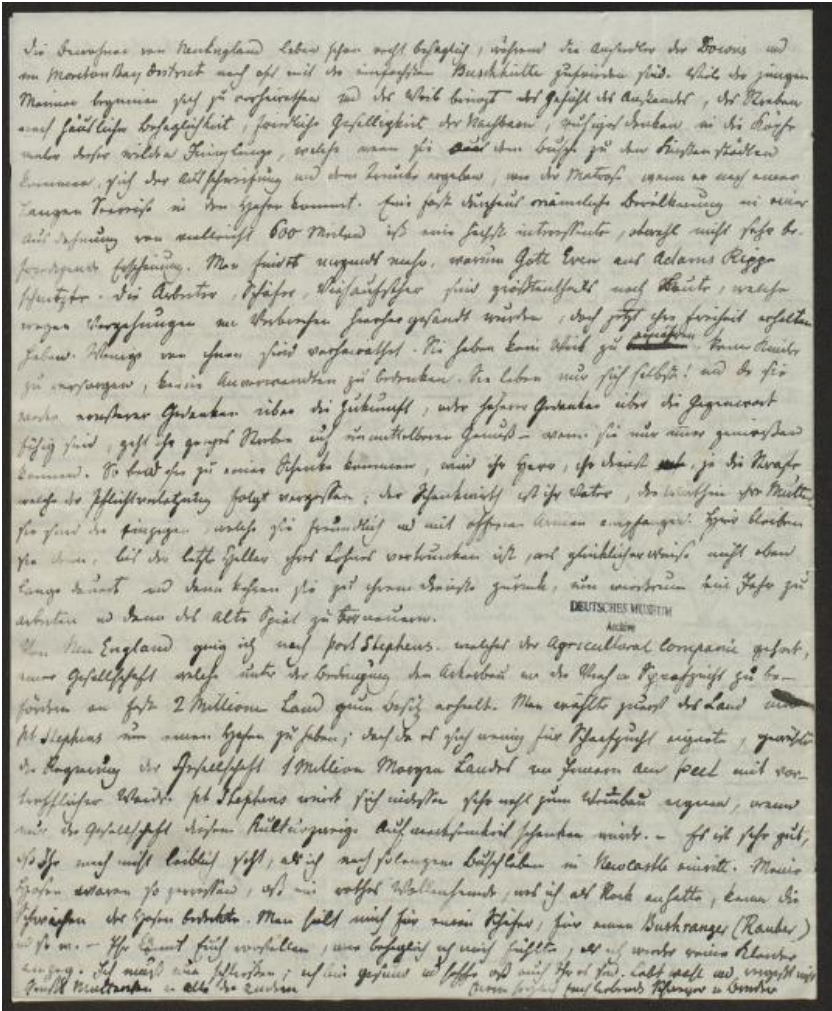 die Bewohner von NeuEngland leben schon recht behaglich, während die Ansiedler der Downs und
im Moreton Bay District noch oft mit der einfachsten Buschhütte zufrieden sind. Weil die jungen
Männer beginnen sich zu verheirathen und das Weib bringt das Gefühl des Anstandes, das Streben
nach häuslicher Behaglichkeit, freundliche Geselligkeit der Nachbarn, ruhiges Denken in die Köpfe
vieler dieser wilden Jünglinge, welche wenn sie aus dem Busche zu den Küstenstädten
kommen, sich der Ausschweifung und dem Trunke ergeben, wie der Matrose, wenn er nach einer
langen Seereise in den Hafen kommt. Eine fast durchaus männliche Bevölkerung in einer
Ausdehnung von vielleicht 600 Meilen ist eine höchst interessante, obwohl nicht sehr be-
friedigende Erscheinung. Man findet nirgends mehr, warum Gott Even aus Adams Rippe
schnitzte. Die Arbeiter, Schäfer, Viehaufseher sind größtentheils noch Leute, welche
wegen Vergehungen und Verbrechen hierher gesandt wurden, doch jetzt ihre Freiheit erhalten
haben. Wenige von ihnen sind verheirathet. Sie haben kein Weib zu ernähren, keine Kinder
zu versorgen, keine Anverwandten zu bedenken. Sie leben nur sich selbst! und da sie
weder ernsterer Gedanken über die Zukunft, oder höherer Gedanken über die Gegenwart
fähig sind, geht ihr ganzes Streben auf unmittelbaren Genuß – wenn sie nur immer genießen
können. So bald sie zu einer Schenke kommen, wird ihr Herr, ihr Dienst, ja die Strafe
welche der Pflichtverletzung folgt vergessen; der Schenkwirth ist ihr Vater, die Wirthin ihre Mutter
sie sind die einzigen, welche sie freundlich und mit offenen Armen empfangen. Hier bleiben
sie denn, bis der letzte Heller ihres Lohnes vertrunken ist, was glücklicherweise nicht eben
lange dauert und dann kehren sie zu ihrem Dienste zurück, um wiederum ein Jahr zu
arbeiten und dann das alte Spiel zu erneuern.
DEUTSCHES MUSEUM
Archive
Von Neu England ging ich nach port Stephens, welches der Agricultural Companie gehört,
einer Gesellschaft welche unter der Bedingung den Ackerbau und die Vieh u Schafzucht zu be-
fördern an fast 2 Millionen Land zum Besitz erhielt. Man wählte zuerst das Land um
pt Stephens um einen Hafen zu haben; doch da es sich wenig für Schaafzucht eignete, gewährte
die Regierung der Gesellschaft 1 Million Morgen Landes im Innern am peel mit vor-
trefflicher Weide. pt Stephens würde sich indessen sehr wohl zum Weinbau eignen, wenn
nur die Gesellschaft diesem Kulturzweige Aufmerksamkeit schenken würde. – Es ist sehr gut,
daß Ihr mich nicht leiblich seht, als ich nach so langem Buschleben in Newcastle einritt. Meine
Hosen waren so zerrissen, daß ein rothes Wollenhemde, was ich als Rock anhatte, kaum die
Schwächen der Hosen bedeckte. Man hielt mich für einen Schäfer, für einen Bushranger (Räuber)
und so w. – Ihr könnt Euch vorstellen, wie behaglich ich mich fühlte, als ich wieder reine Kleider
anzog. Ich muß nun schließen; ich bin gesund und hoffe daß auch Ihr es seid. Lebt wohl und vergeßt nicht
Grüßt Mutterchen u alle die andern Euren herzlich Euch liebenden Schwager u Bruder